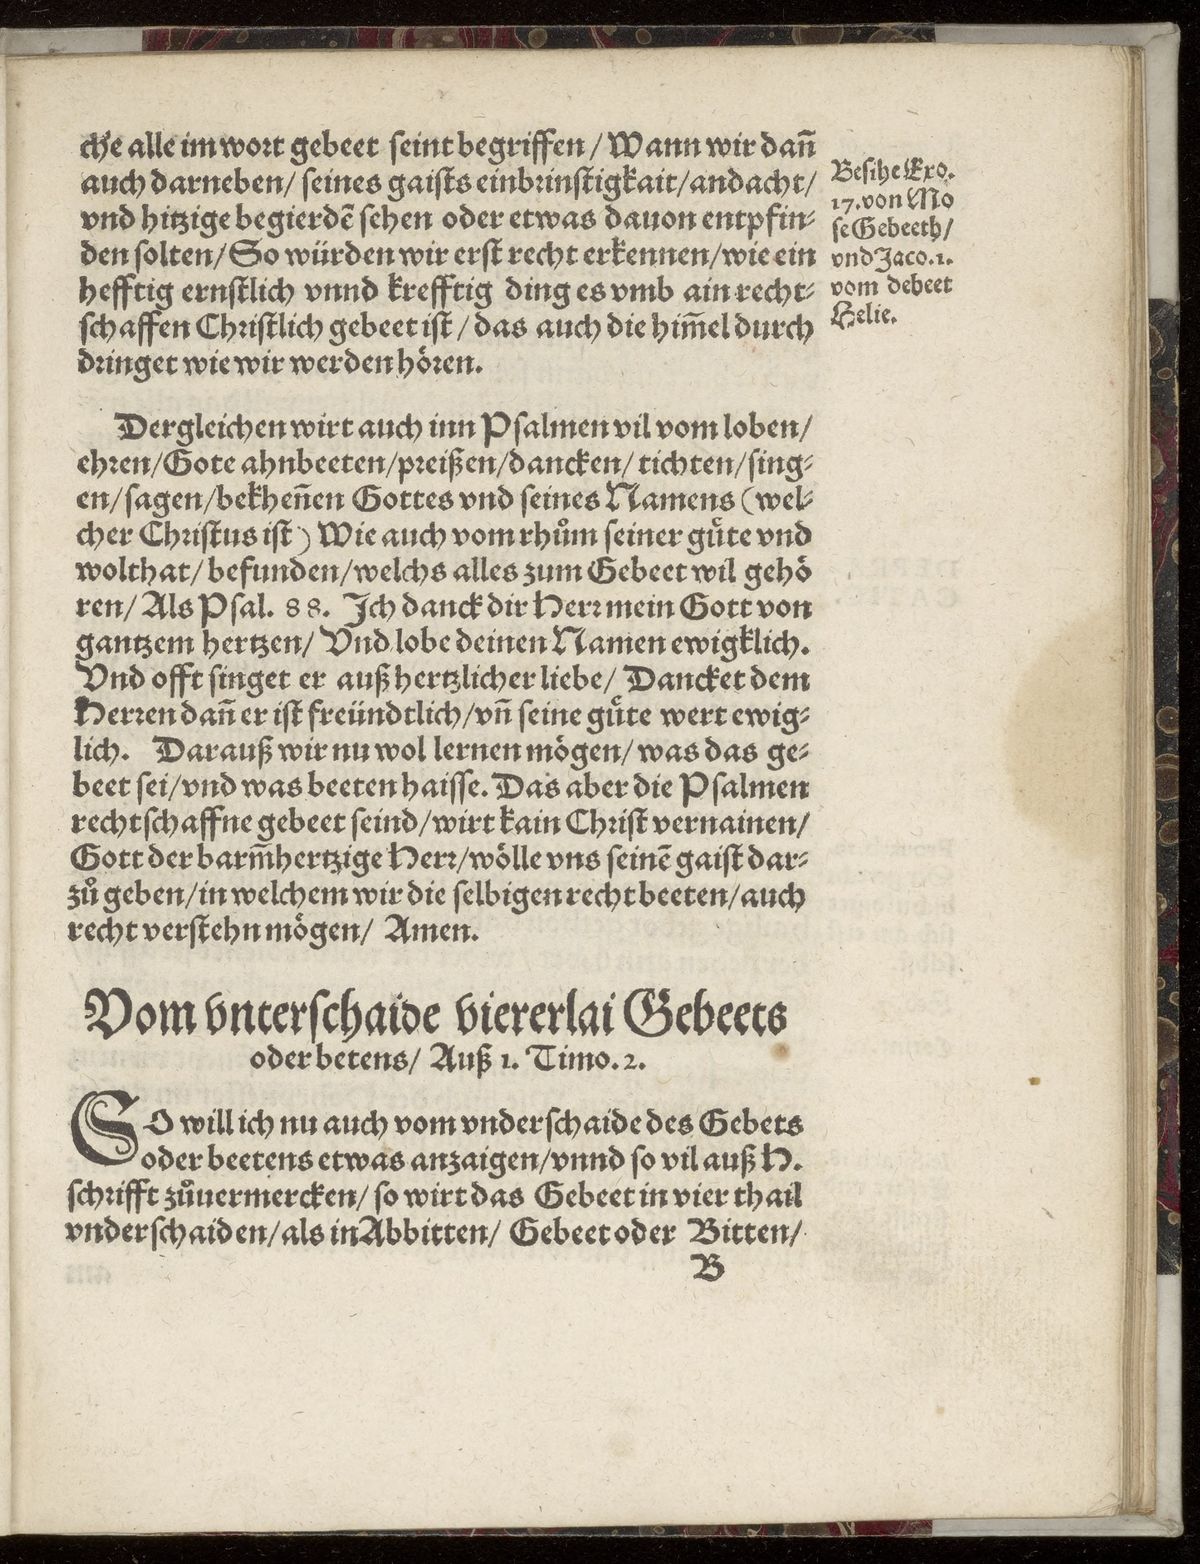 che alle im wort gebeet seint begriffen / Wann wir dañ
auch darneben / seines gaists einbrinstigkait / andacht /
vnd hitzige begierdē sehen oder etwas dauon entpfin⸗
den solten / So würden wir erst recht erkennen / wie ein
hefftig ernstlich vnnd krefftig ding es vmb ain recht⸗
schaffen Christlich gebeet ist / das auch die him̃el durch
dringet wie wir werden hören.
Besihe Exo.
17. von Mo
se Gebeeth /
vnd Jaco. 1.
vom debeet
Helie.
Dergleichen wirt auch inn Psalmen vil vom loben /
ehren / Gote ahnbeeten / preißen / dancken / tichten / sing⸗
en / sagen / bekheñen Gottes vnd seines Namens (wel⸗
cher Christus ist) Wie auch vom rhům seiner gůte vnd
wolthat / befunden / welchs alles zum Gebeet wil gehö
ren / Als Psal. 88. Ich danck dir Herr mein Gott von
gantzem hertzen / Vnd lobe deinen Namen ewigklich.
Vnd offt singet er auß hertzlicher liebe / Dancket dem
Herren dañ er ist freündtlich / vñ seine gůte wert ewig⸗
lich. Darauß wir nu wol lernen mögen / was das ge⸗
beet sei / vnd was beeten haisse. Das aber die Psalmen
rechtschaffne gebeet seind / wirt kain Christ vernainen /
Gott der barm̃hertzige Herr / wölle vns seinē gaist dar⸗
zů geben / in welchem wir die selbigen recht beeten / auch
recht verstehn mögen / Amen.
Vom vnterschaide viererlai Gebeets
oder betens / Auß 1. Timo. 2.
SO will ich nu auch vom vnderschaide des Gebets
oder beetens etwas anzaigen / vnnd so vil auß H.
schrifft zůuermercken / so wirt das Gebeet in vier thail
vnderschaiden / als in Abbitten / Gebeet oder Bitten /
B